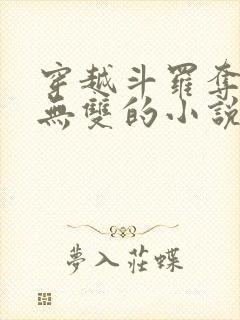 穿越斗羅奪
無雙的小說
夢入莊蝶